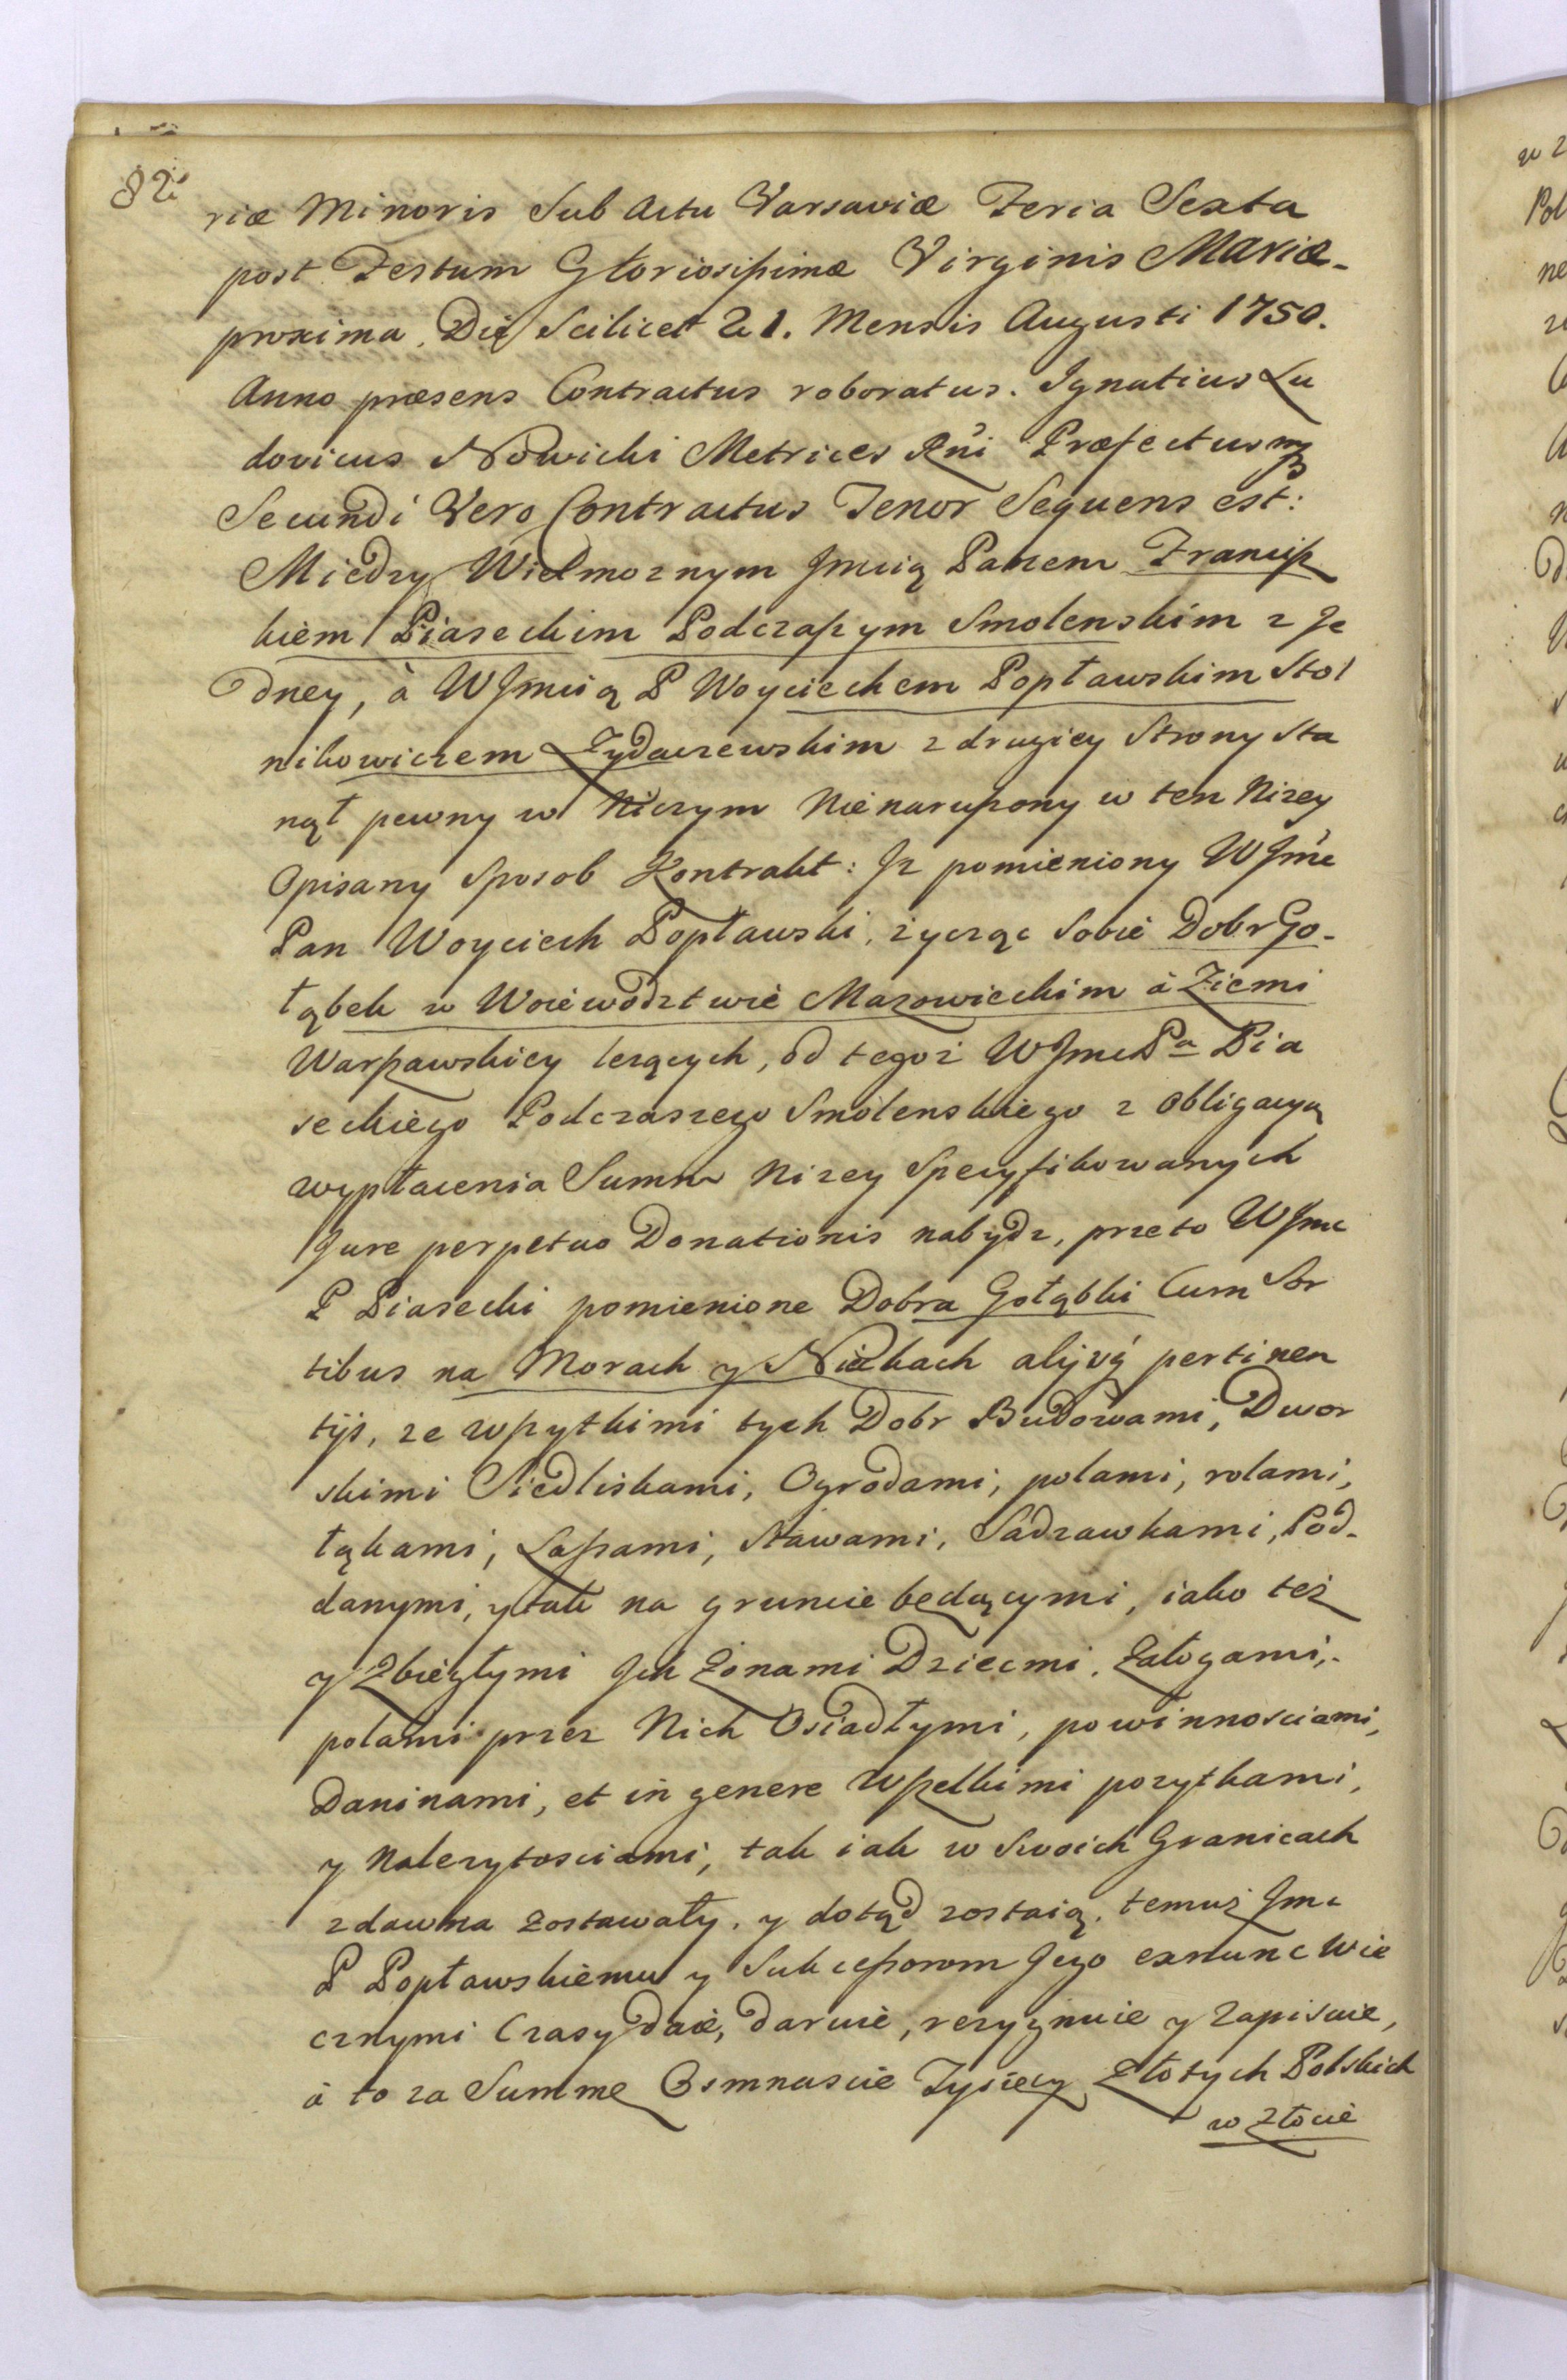 82
riæ Minoris Sub Actu Varsaviæ Feria Sexta
post Festum Gloriosißimæ Virginis Mariæ-
proxima, Die Scilicet 21. Mensis Augusti 1750.
Anno præsens Contractus roboratus. Ignatius Lu
dovicus Nowicki Metrices Rńi Præfectus mp
Secundi Vero Contractus Tenor Sequens est:
Miedzy Wielmoznym Jmcią Panem Franciß
kiem Piaseckim Podczaßym Smolenskim z Je
dney, à WJmcią P Woyciechem Popławskim Stol
nikowiczem Zydaczewskim z drugiey Strony Sta
nął pewny w Niczym Nienarußony w ten Nizey
Opisany Sposob Kontrakt: Jz pomieniony WJmć
Pan Woyciech Popławski, zycząc Sobie Dobr Go-
łąbek w Woiewodztwie Mazowieckim à Ziemi
Warßawskiey lezących, od tegoż WJmcPa Pia
seckiego Podczaszego Smolenskiego z Obligacyą
wypłacenia Summ Nizey Specyfikowanych
Jure perpetuo Donationis nabydz, przeto WJmc
P Piasecki pomienione Dobra Gołąbki Cum Sor
tibus na Morach y Niekach alijvę pertinen
tijs, ze wßytkimi tych Dobr Budowami, Dwor
skimi Siedliskami, Ogrodami, polami, rolami,
łąkami, Laßami, Stawami, Sadzawkami, Pod-
danymi, y tak na gruncie będącymi, iako też
y Zbiegłymi Jch Zonami Dziecmi, Załogami,-
polami przez Nich Osiadłymi, powinnosciami,
Daninami, et in genere Wßelkimi pozytkami,
y Nalezytosciami, tak iak w Swoich Granicach
zdawna zostawały, y dotąd zostaią, temuż Jmc
P Popławskiemu y Sukceßorom Jego exnunc Wie
cznymi Czasy Daie, Daruie, rezygnuie y Zapisuie,
à to za Summę Osmnascie Tysięcy Złotych Polskich
w Złocie